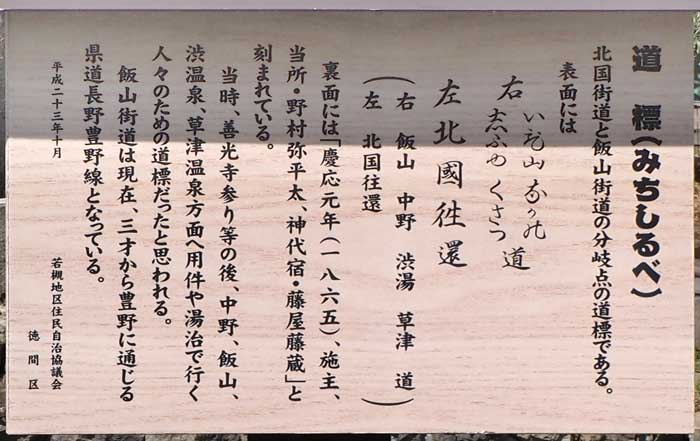 道標(みちしるべ)
北国街道と飯山街道の分岐点の道標である。
表面には
いひ山 なかの
右 志ふゆ くさつ 道
左 北國往還
(右 飯山 中野 渋湯 草津 道)
(左 北国往還)
裏面には「慶応元年(一八六五)、施主、
当所・野村弥平太、神代宿・藤屋藤蔵」と
刻まれている。
当時、善光寺参り等の後、中野、飯山、
渋温泉、草津温泉方面へ用件や湯治で行く
人々のための道標だったと思われる。
飯山街道は現在、三才から豊野に通じる
県道長野豊野線となっている。
平成二十三年十月
若槻地区住民自治協議会
徳間区